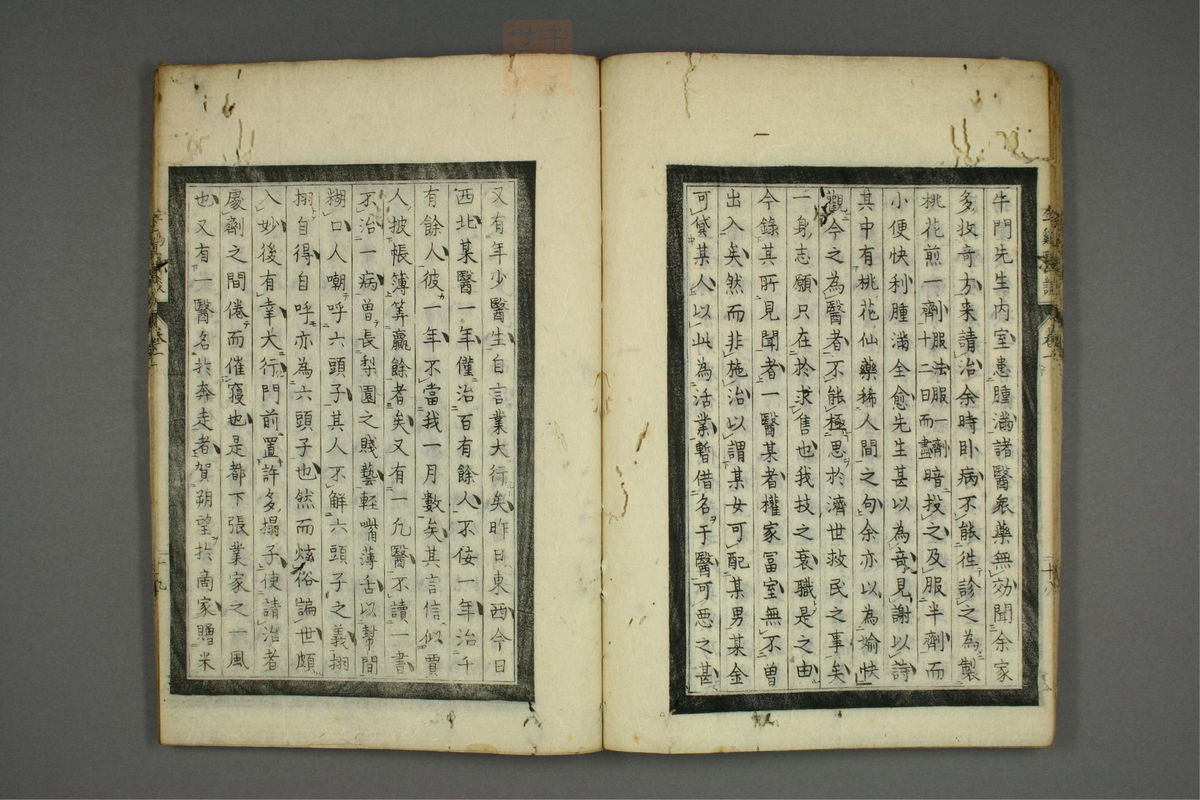 牛門先生内室患腫満諸醫衆藥無効聞余家
多收竒方来請治余時卧病不能徃診之為製
桃花煎一劑服法服一劑暗投之及服半劑而
小便快利腫滿全愈先生甚以為竒見謝以詩
其中有桃花仙藥稀人間之句余亦以為愉快
觀今之為醫者不能極思於濟世救民之事矣
一身志願只在於求售也我技之衰職是之由
今錄其所見聞者一醫某者權家冨室無不曽
出入矣然而非施治以謂某女可配某男某金
可貸某人以此為活業暫借名于醫可惡之甚
又有年少醫生自言業大行矣昨日東西今日
西北某醫一年僅治百有餘人不佞一年治千
有餘人彼一年不當我一月數矣其言信似賈
人披帳簿筭贏餘者矣又有一凢醫不讀一書
不治一病曽長梨園之賤藝輕嘴薄舌以幇間
糊口人嘲呼六頭子其人不解六頭子之義搊
搊自得自呼亦為六頭子也然而炫俗諞世頗
入妙後有幸大行門前置許多搨子使請治者
慶劑之間倦而催寢也是都下張業家之一風
也又有一醫名於奔走者賀朔望於商家贈米